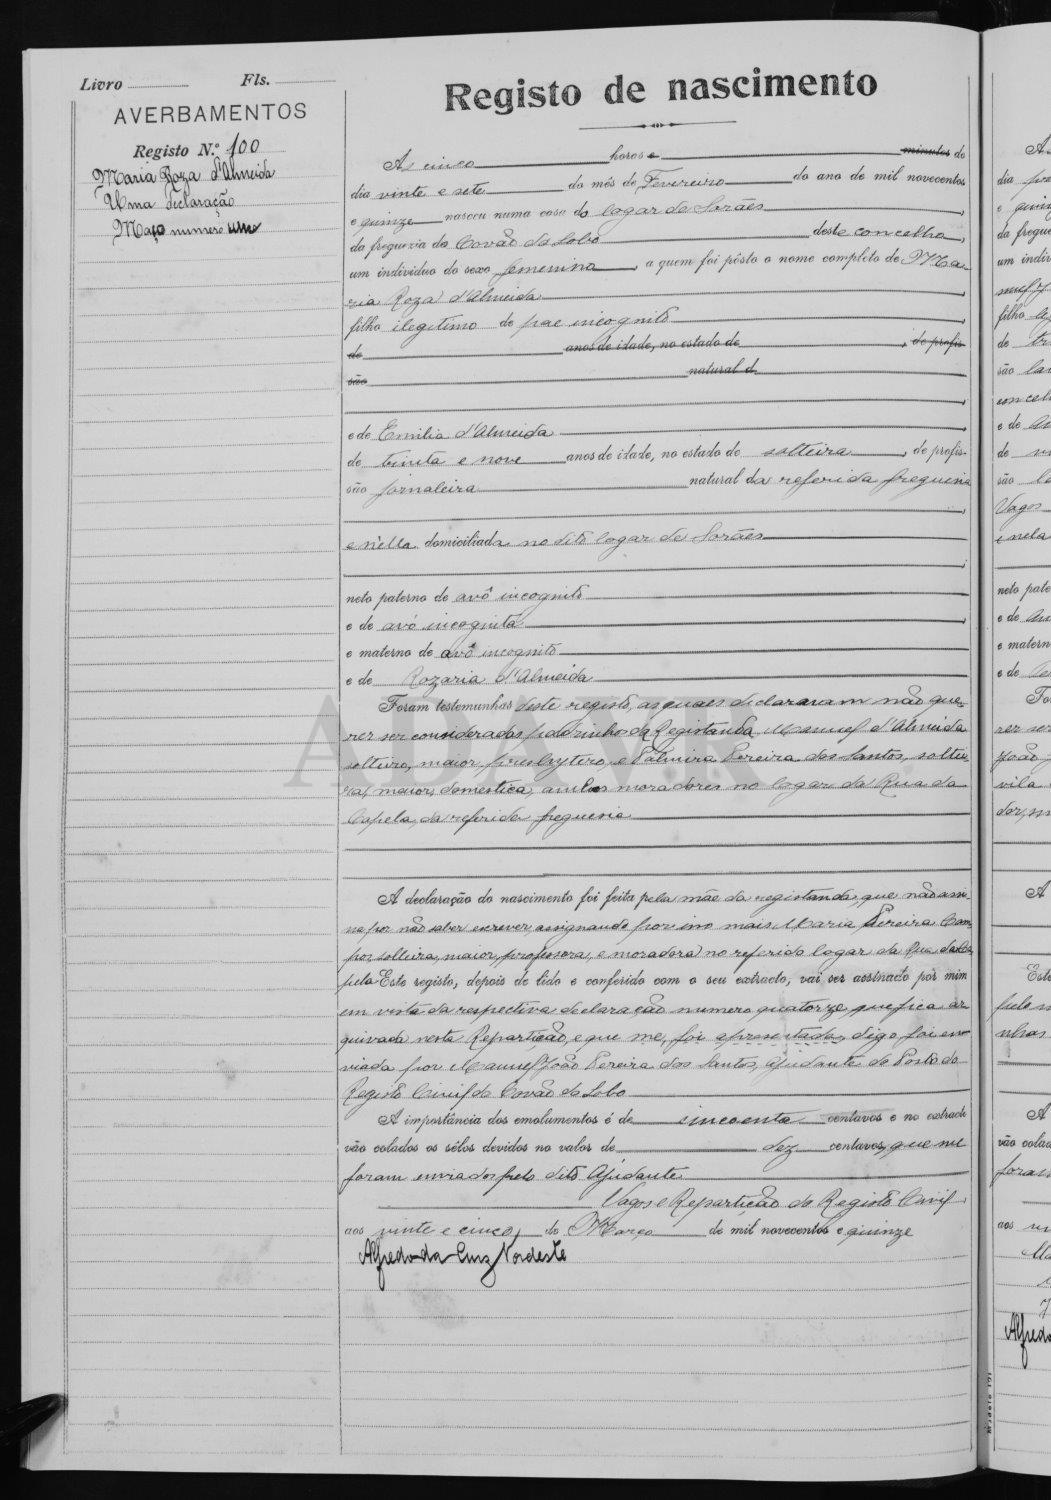 Livro Fls.
AVERBAMENTOS
Registo N.º 100
Maria Roza d'Almeida
Uma declaração
Maço numero um
Registo de nascimento
As cinco horas e minutos do
dia vinte e sete do mês de Fevereiro do ano de mil novecentos
e quinze nasceu numa casa do logar de Sorães,
da freguezia do Covão do Lobo deste concelho,
um individuo do sexo femenino, a quem foi pôsto o nome completo de Ma-
ria Roza d'Almeida
filho ilegitimo de pae incognito,
de anos de idade, no estado de, de profis-
são natural d
e de Emilia d'Almeida
de trinta e nove anos de idade, no estado de solteira, de profis-
são jornaleira natural da referida freguezia
e n'ella domiciliada no dito logar de Sorães
neto paterno de avô incognito
e de avó incognita,
e materno de avô incognito
e de Rozaria d'Almeida
Foram testemunhas deste registo, as quaes declararam não que-
rer ser considerados padrinhos da Registanda, Manuel d'Almeida
solteiro, maior, presbytero, e Palmira Pereira dos Santos, soltei-
ra, maior, domestica, ambos moradores no logar da Rua da
Capela, da referida freguezia
A declaração do nascimento foi feita pela mãe da registanda, que não assi-
na por não saber escrever, assignando por isso mais Maria Pereira Cam-
pos, solteira, maior, professora, e moradora no referido logar da Rua da Ca-
pela Este registo, depois de lido e conferido com o seu extracto, vai ser assinado por mim
em vista da respectiva declaração numero quatorze, que fica ar-
quivada nesta Repartição, e que me, foi apresentada, digo, foi en-
viada por Manuel João Pereira dos Santos, ajudante do Posto do
Registo Civil do Covão do Lobo
A importância dos emolumentos é de cincoenta centavos e no extracto
vão colados os sêlos devidos no valor de dez centavos, que me
foram enviados pelo dito Ajudante
Vagos e Repartição do Registo Civil,
aos vinte e cinco, de Março de mil novecentos e quinze
Alfredo da Cruz Nordeste
ADAVR